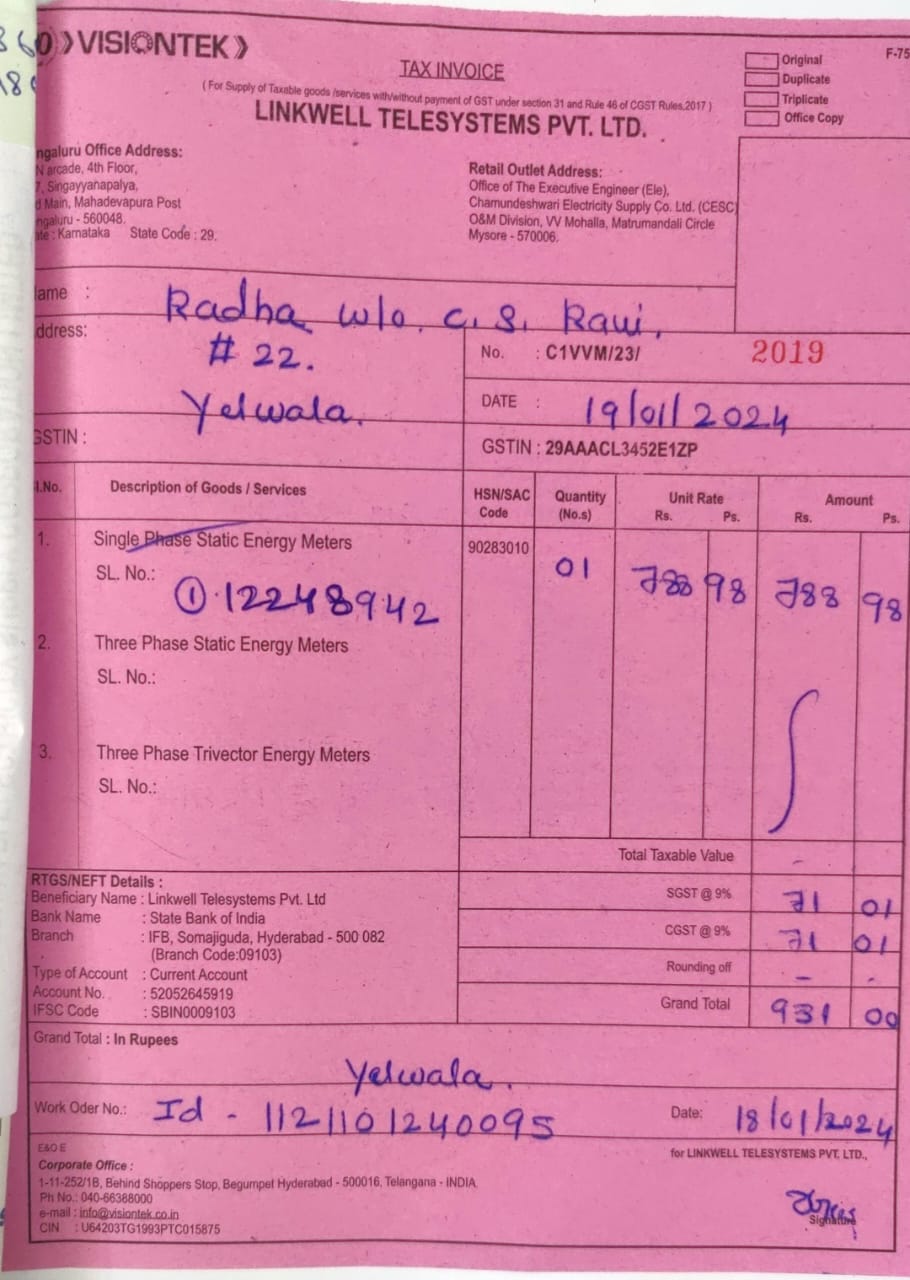 VISIONTEK
TAX INVOICE
( For Supply of Taxable goods /services with/without payment of GST under section 31 and Rule 46 of CGST Rules,2017 )
LINKWELL TELESYSTEMS PVT. LTD.
Original
Duplicate
Triplicate
Office Copy
F-75
ngaluru Office Address:
N arcade, 4th Floor,
7, Singayyanapalya,
d Main, Mahadevapura Post
ngaluru - 560048.
ate : Karnataka State Code : 29.
Retail Outlet Address:
Office of The Executive Engineer (Ele),
Chamundeshwari Electricity Supply Co. Ltd. (CESC)
O&M Division, VV Mohalla, Matrumandali Circle
Mysore - 570006.
ame : Radha w/o. C. S. Ravi,
ddress: # 22.
Yelwala.
No. : C1VVM/23/ 2019
DATE : 19/01/2024
GSTIN :
GSTIN : 29AAACL3452E1ZP
l.No. Description of Goods / Services HSN/SAC Code Quantity (No.s) Unit Rate Rs. Ps. Amount Rs. Ps.
1. Single Phase Static Energy Meters 90283010 01 788 98 788 98
SL. No.: ① 12248942
2. Three Phase Static Energy Meters
SL. No.:
3. Three Phase Trivector Energy Meters
SL. No.:
Total Taxable Value -
SGST @ 9% 71 01
CGST @ 9% 71 01
Rounding off - -
Grand Total 931 00
RTGS/NEFT Details :
Beneficiary Name : Linkwell Telesystems Pvt. Ltd
Bank Name : State Bank of India
Branch : IFB, Somajiguda, Hyderabad - 500 082
(Branch Code:09103)
Type of Account : Current Account
Account No. : 52052645919
IFSC Code : SBIN0009103
Grand Total : In Rupees
Yelwala.
Work Oder No.: Id - 1121101240095 Date: 18/01/2024
E&O E
for LINKWELL TELESYSTEMS PVT. LTD.,
Corporate Office :
1-11-252/1B, Behind Shoppers Stop, Begumpet Hyderabad - 500016, Telangana - INDIA.
Ph No.: 040-66388000
e-mail : info@visiontek.co.in
CIN : U64203TG1993PTC015875
Signature